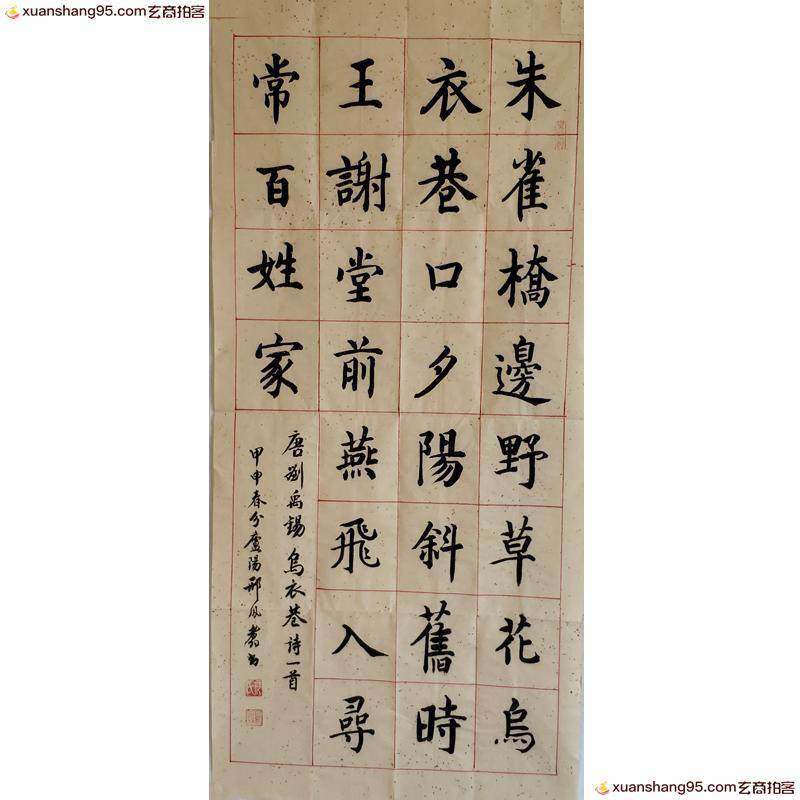 xuanshang95.com玄商拍客
xuanshang95.com玄商拍客
朱雀橋邊野草花烏
衣巷口夕陽斜舊時
王謝堂前燕飛入尋
常百姓家
唐劉禹錫烏衣巷詩一首
甲申春分廬陽邢風書
xuanshang95.com玄商拍客